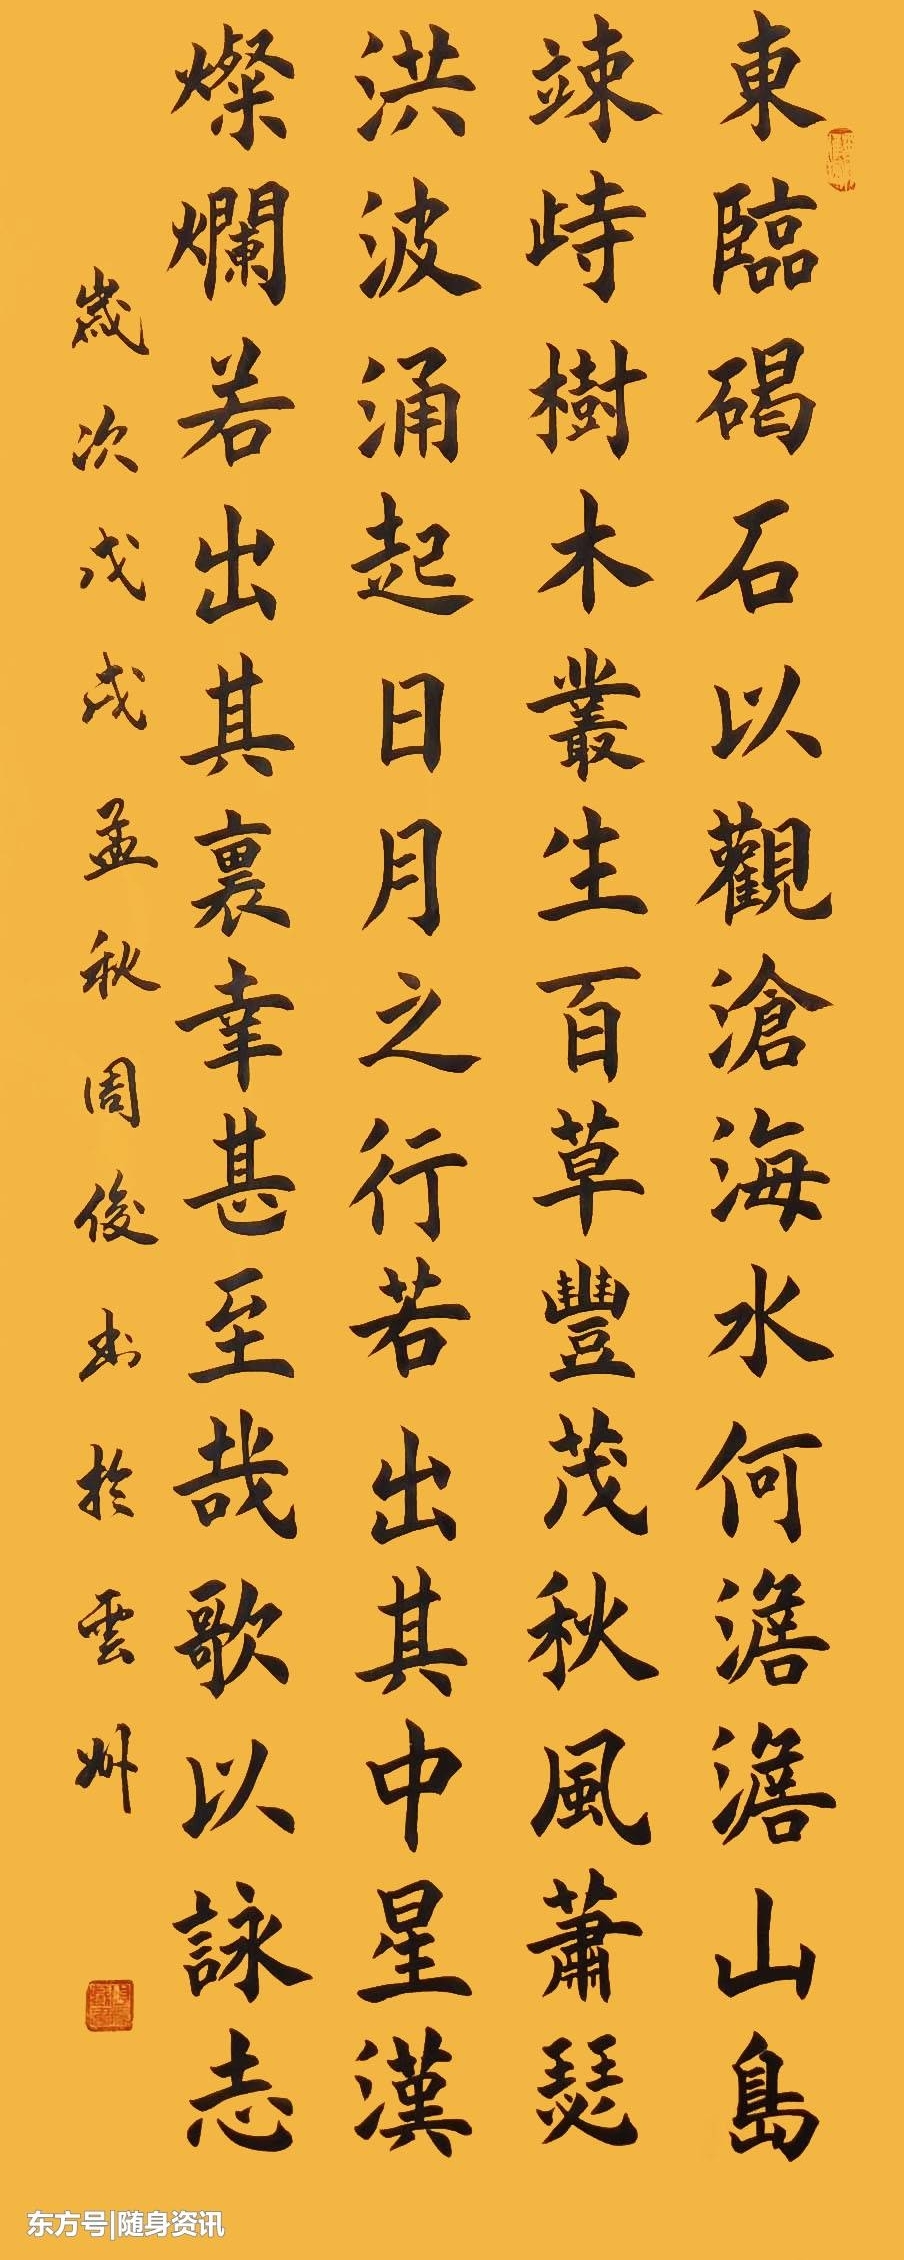 東臨碣石以觀滄海水何澹澹山島
竦峙樹木叢生百草豐茂秋風蕭瑟
洪波涌起日月之行若出其中星漢
燦爛若出其裏幸甚至哉歌以詠志
歲次戊戌孟秋周俊書於雲州
东方号|随身资讯